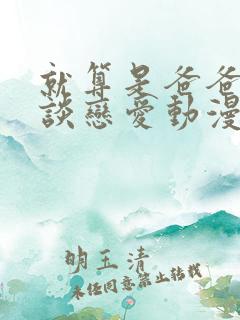 就算是爸爸
談戀愛動漫
明玉清
未經同意禁止轉載